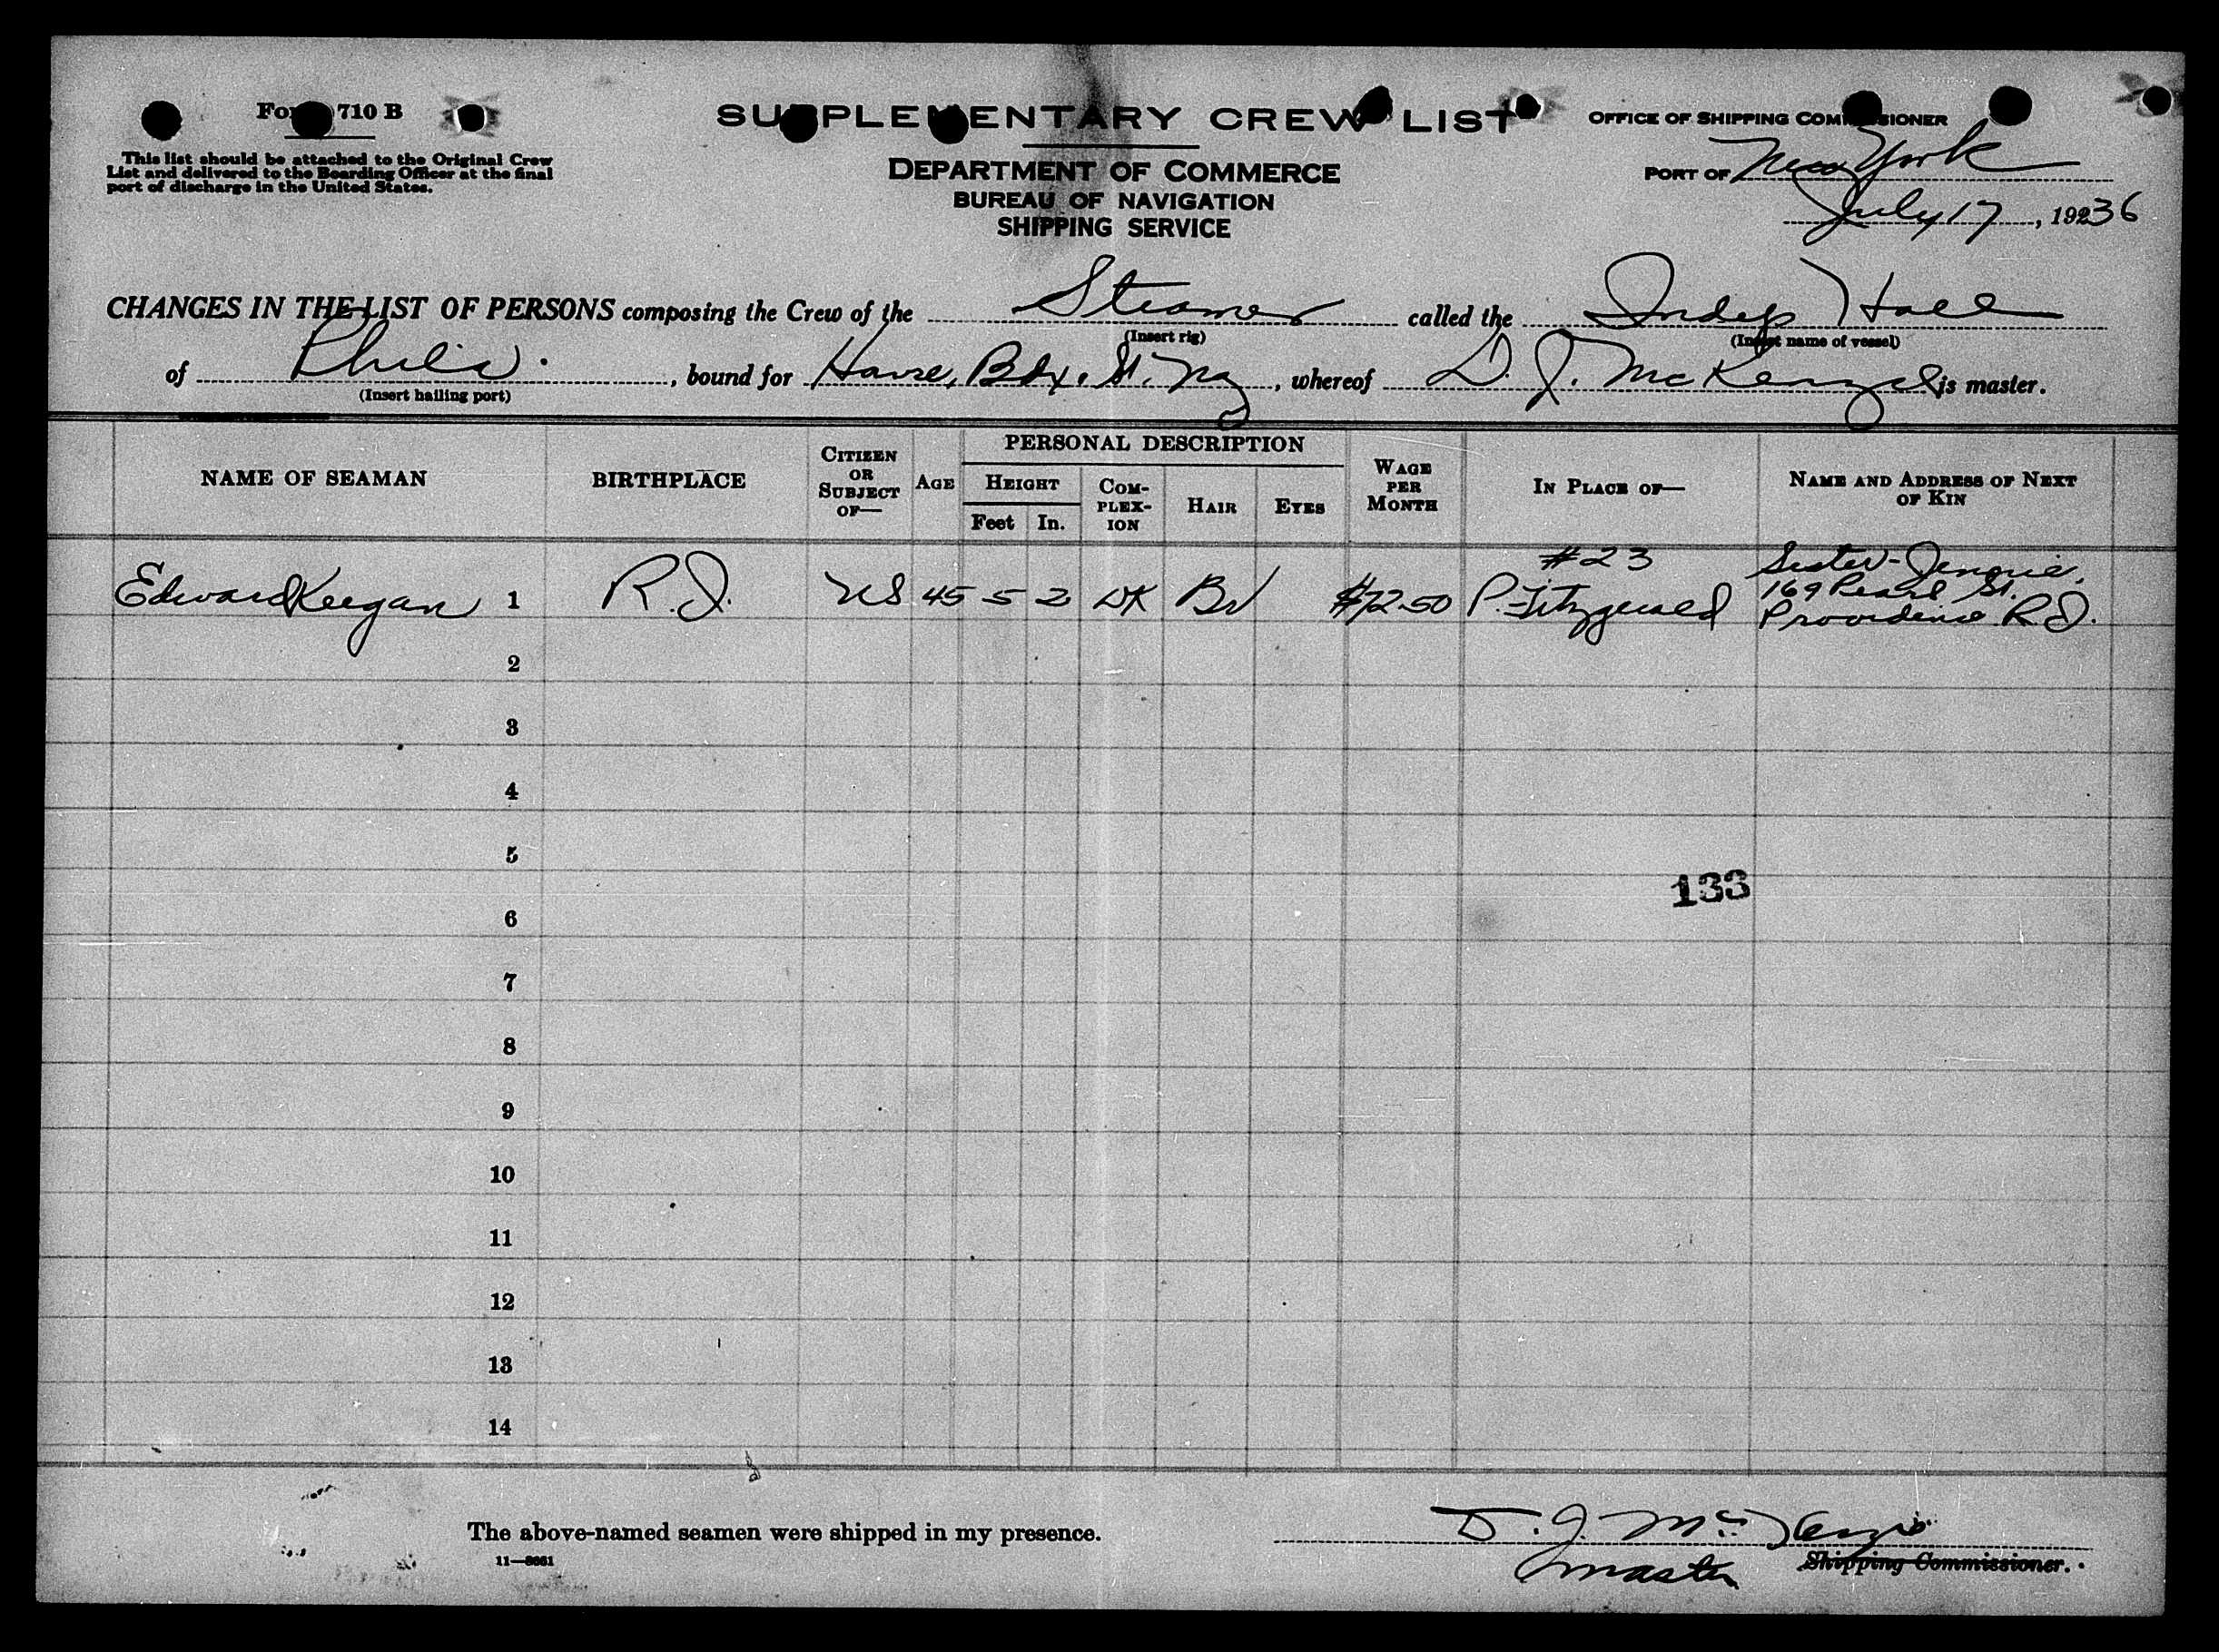 Form 710 B
This list should be attached to the Original Crew
List and delivered to the Boarding Officer at the final
port of discharge in the United States.
SUPPLEMENTARY CREW LIST
DEPARTMENT OF COMMERCE
BUREAU OF NAVIGATION
SHIPPING SERVICE
OFFICE OF SHIPPING COMMISSIONER
PORT OF New York
July 17, 19236
CHANGES IN THE LIST OF PERSONS composing the Crew of the Steamer called the Indep Hall
(Insert rig) (Insert name of vessel)
of Phila., bound for Havre, Bdx. St. Naz, whereof D. J. McKenzie is master.
(Insert hailing port)
NAME OF SEAMAN BIRTHPLACE CITIZEN OR SUBJECT OF— AGE PERSONAL DESCRIPTION HEIGHT Feet In. COMPLEXION HAIR EYES WAGE PER MONTH IN PLACE OF— NAME AND ADDRESS OF NEXT OF KIN
Edward Keegan 1 R.I. US 45 5 2 DK Br $72.50 #23 P. Fitzgerald Sister-Jennie, 169 Pearl St. Providence R.I.
2
3
4
5
133
6
7
8
9
10
11
12
13
14
The above-named seamen were shipped in my presence.
D. J. McKenzie
master Shipping Commissioner.
11—8661